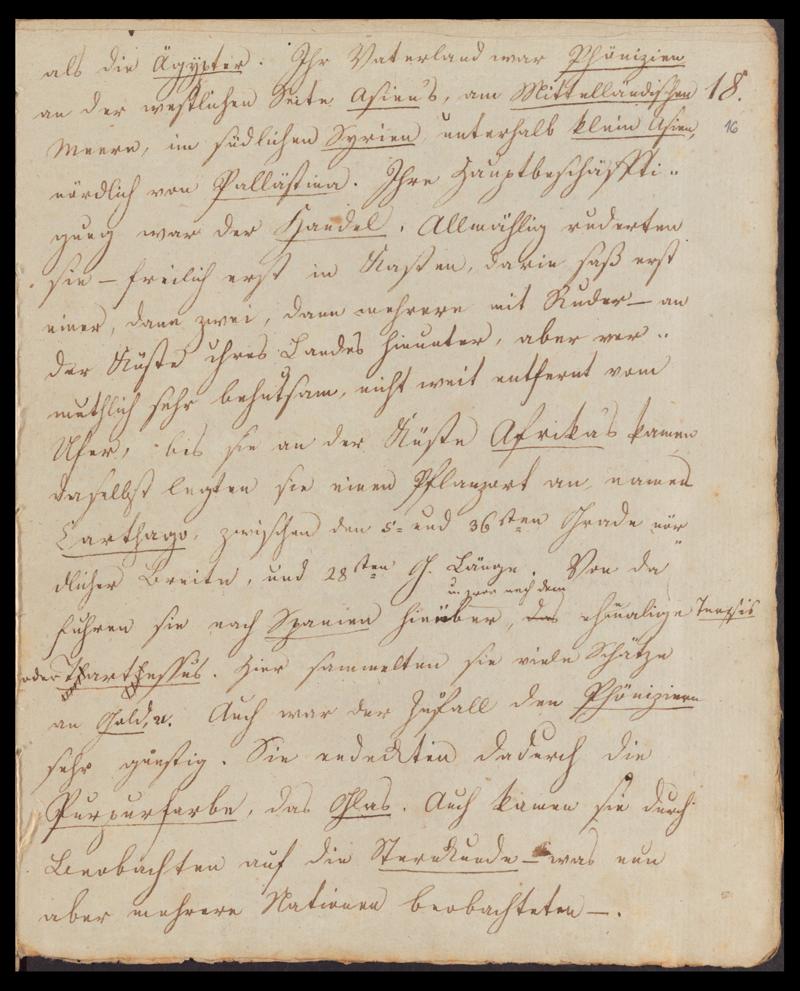 als die Ägypter. Ihr Vaterland war Phönizien
an der westlichen Seite Asien's, am Mittelländischen 18.
16
Meere, im südlichen Syrien unterhalb klein Asien,
nördlich von Pallästina. Ihre Hauptbeschäffti-
gung war der Handel. Allmählig ruderten
sie – freilich erst in Kasten, darin saß erst
einer, dann zwei, dann mehrere mit Ruder – an
der Küste ihres Landes hinunter, aber ver-
muthlich sehr behutsam, nicht weit entfernt vom
Ufer, bis sie an der Küste Afrika's kamen
daselbst legten sie einen Pflanzort an, namens
Carthago, zwischen den 5= und 36sten Grade nör-
dlicher Breite, und 28sten G. Länge. Von da
u. zwar nach dem
fuhren sie nach Spanien hinüber, das ehmalige
oder Tharthessus. Hier sammelten sie viele Schätze
an Gold, u. Auch war der Zufall den Phöniziern
sehr günstig. Sie endeckten dadurch die
Purpurfarbe, das Glas. Auch kamen sie durch
Beobachten auf die Sternkunde – was nun
aber mehrere Nationen beobachteten –.